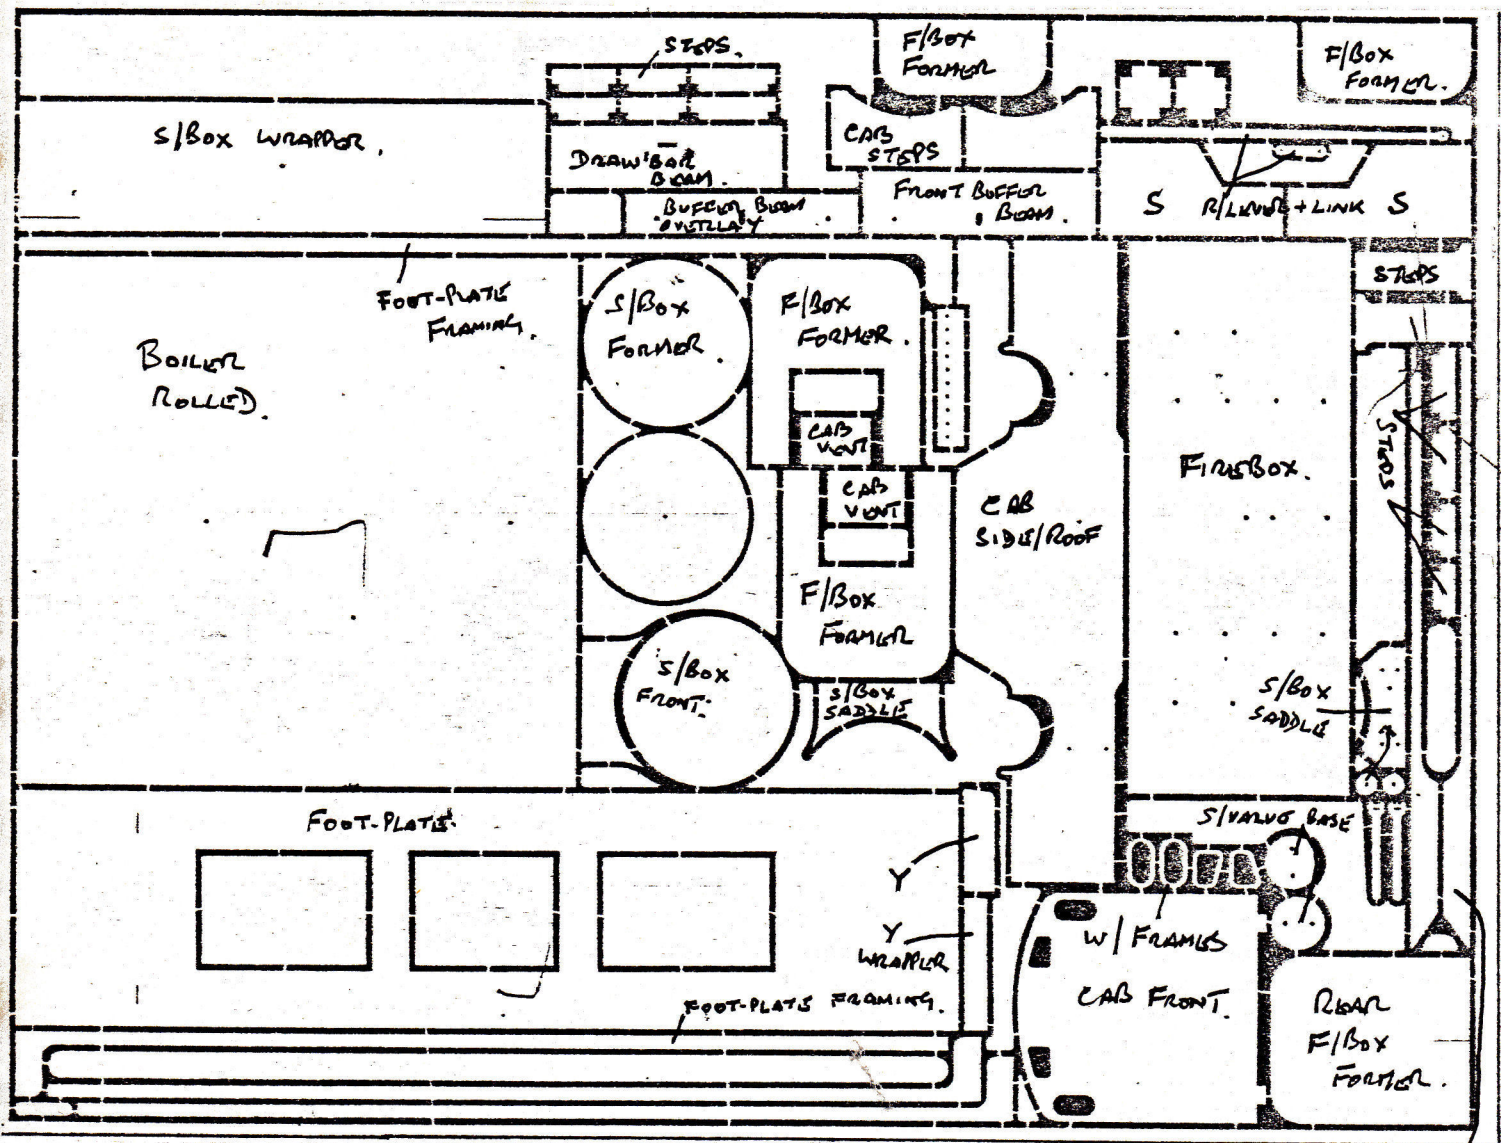 STEPS.
F/BOX
FORMER
F/BOX
FORMER.
S/BOX WRAPPER.
DRAW BAR
BEAM.
CAB
STEPS
BUFFER BEAM
OVERLAY
FRONT BUFFER
BEAM.
S
R/LEVER + LINK
S
STEPS
FOOT-PLATE
FRAMING.
BOILER
ROLLED.
S/BOX
FORMER.
F/BOX
FORMER.
CAB
VENT
CAB
VENT
F/BOX
FORMER
CAB
SIDE/ROOF
FIREBOX.
STEPS
S/BOX
FRONT.
S/BOX
SADDLE
S/BOX
SADDLE
FOOT-PLATE.
S/VALVE BASE
Y
Y
WRAPPER
FOOT-PLATE FRAMING.
W/FRAMES
CAB FRONT.
REAR
F/BOX
FORMER.